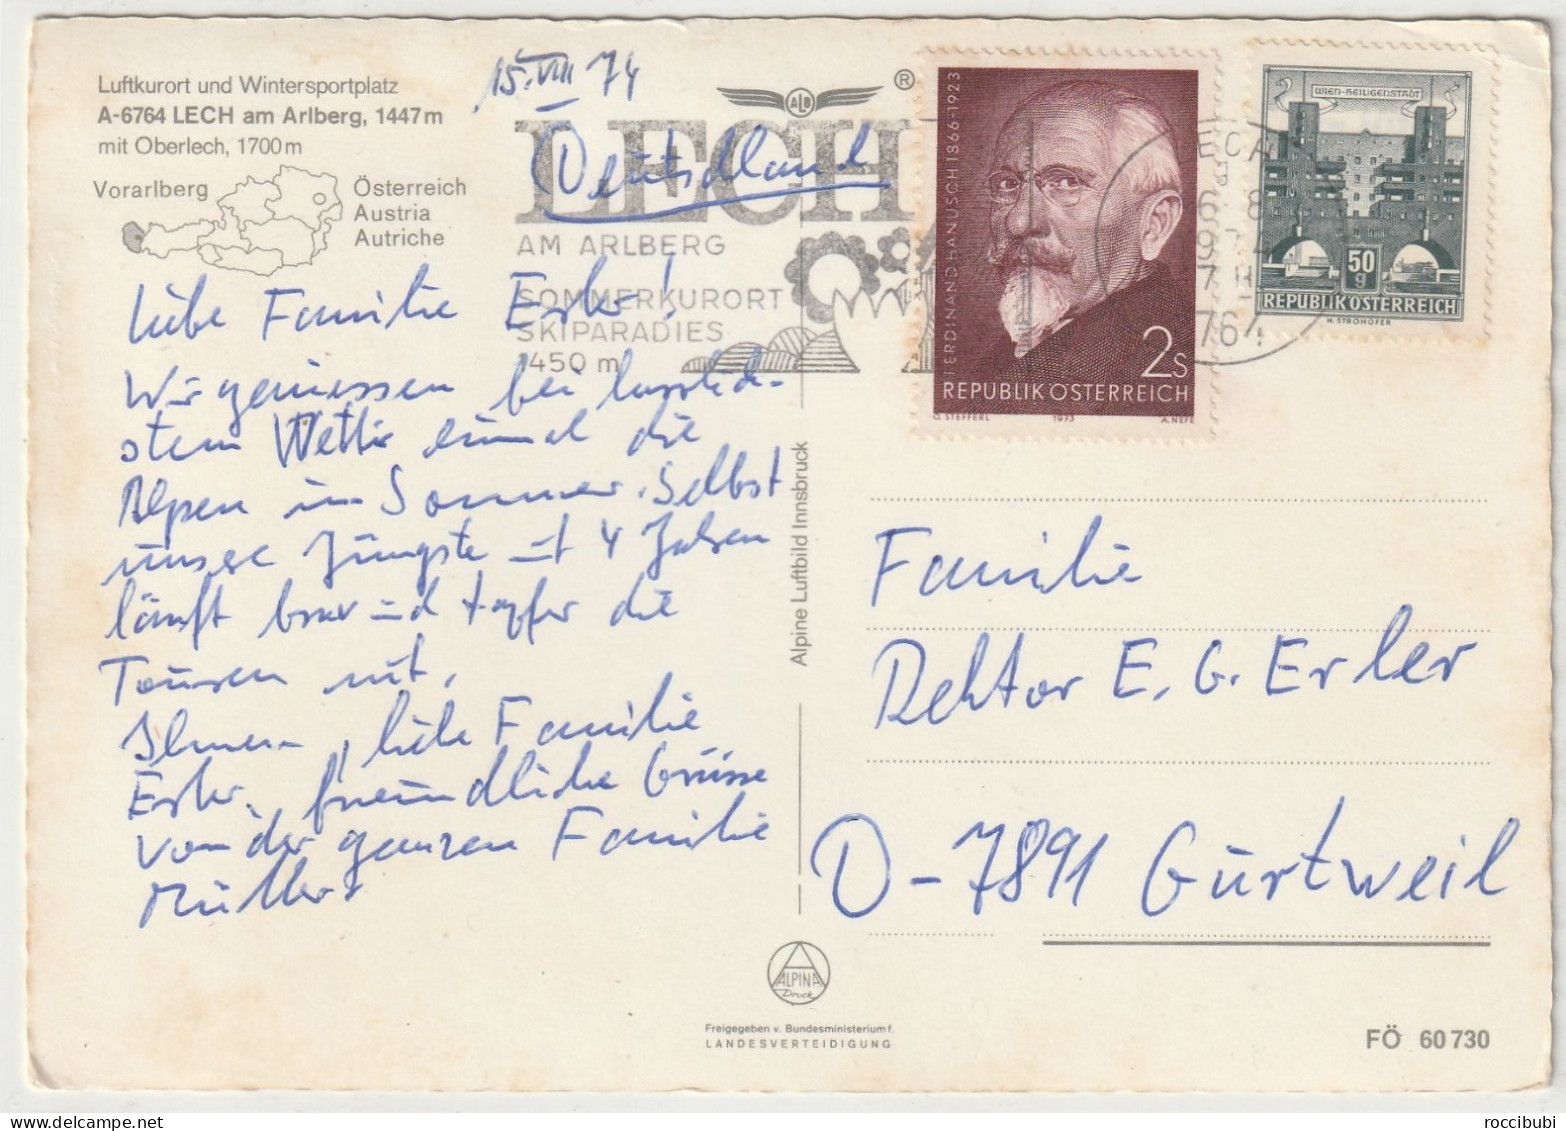 Luftkurort und Wintersportplatz
A-6764 LECH am Arlberg, 1447 m
mit Oberlech, 1700 m
Vorarlberg
Österreich
Austria
Autriche
15. VIII 74
ALB
®
LECH
AM ARLBERG
SOMMERKURORT
SKIPARADIES
1450 m
Deutschland
FERDINAND HANUSCH 1866-1923
2s
REPUBLIK ÖSTERREICH
O. STEFFERL 1973 A. NEFE
WIEN-HEILIGENSTADT
50 g
REPUBLIK ÖSTERREICH
H. STROHOFER
Liebe Familie Erler!
Wir geniessen bei herrlich-
stem Wetter einmal die
Alpen im Sommer. Selbst
unsere Jüngste mit 4 Jahren
läuft brav und tapfer die
Touren mit.
Ihnen, liebe Familie
Erler, freundliche Grüsse
von der ganzen Familie
Müller
Alpine Luftbild Innsbruck
Familie
Rektor E. G. Erler
D-7891 Gurtweil
ALPINA
Druck
Freigegeben v. Bundesministerium f.
LANDESVERTEIDIGUNG
FÖ 60 730
roccibubi